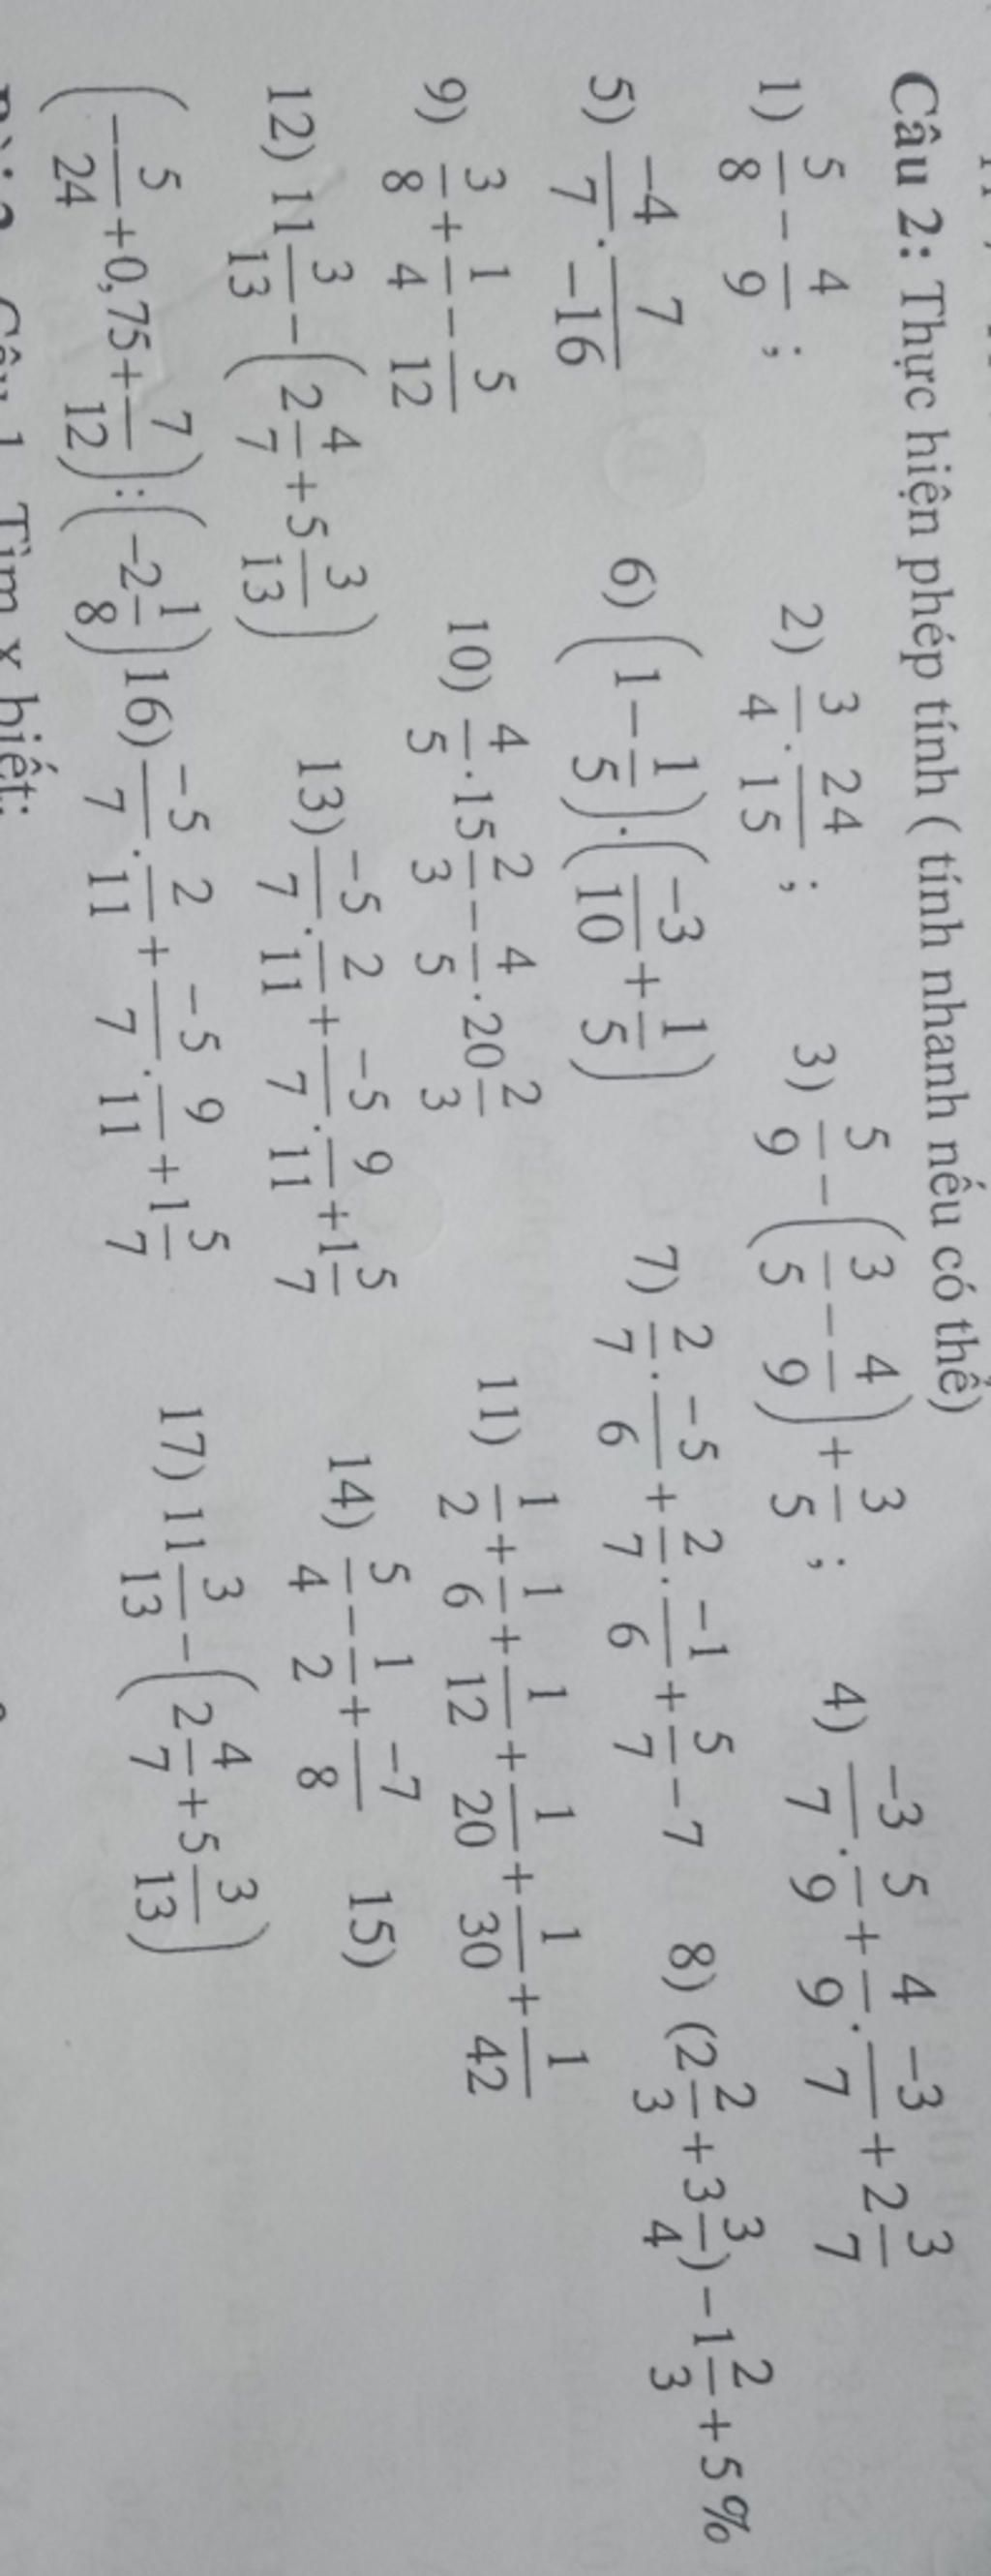 Câu 2: Thực hiện phép tính ( tính nhanh nếu có thể)
1) 5/8 - 4/9 ; 2) 3/4 . 24/15 ; 3) 5/9 - (3/5 - 4/9) + 3/5 ; 4) -3/7 . 5/9 + 4/9 . -3/7 + 2 3/7
5) -4/7 . 7/-16 6) (1 - 1/5) . (-3/10 + 1/5) 7) 2/7 . -5/6 + 2/7 . -1/6 + 5/7 - 7 8) (2 2/3 + 3 3/4) - 1 2/3 + 5%
9) 3/8 + 1/4 - 5/12 10) 4/5 . 15 2/3 - 4/5 . 20 2/3 11) 1/2 + 1/6 + 1/12 + 1/20 + 1/30 + 1/42
12) 11 3/13 - (2 4/7 + 5 3/13) 13) -5/7 . 2/11 + -5/7 . 9/11 + 1 5/7 14) 5/4 - 1/2 + -7/8 15)
(-5/24 + 0,75 + 7/12) : (-2 1/8) 16) -5/7 . 2/11 + -5/7 . 9/11 + 1 5/7 17) 11 3/13 - (2 4/7 + 5 3/13)
Tìm x biết: